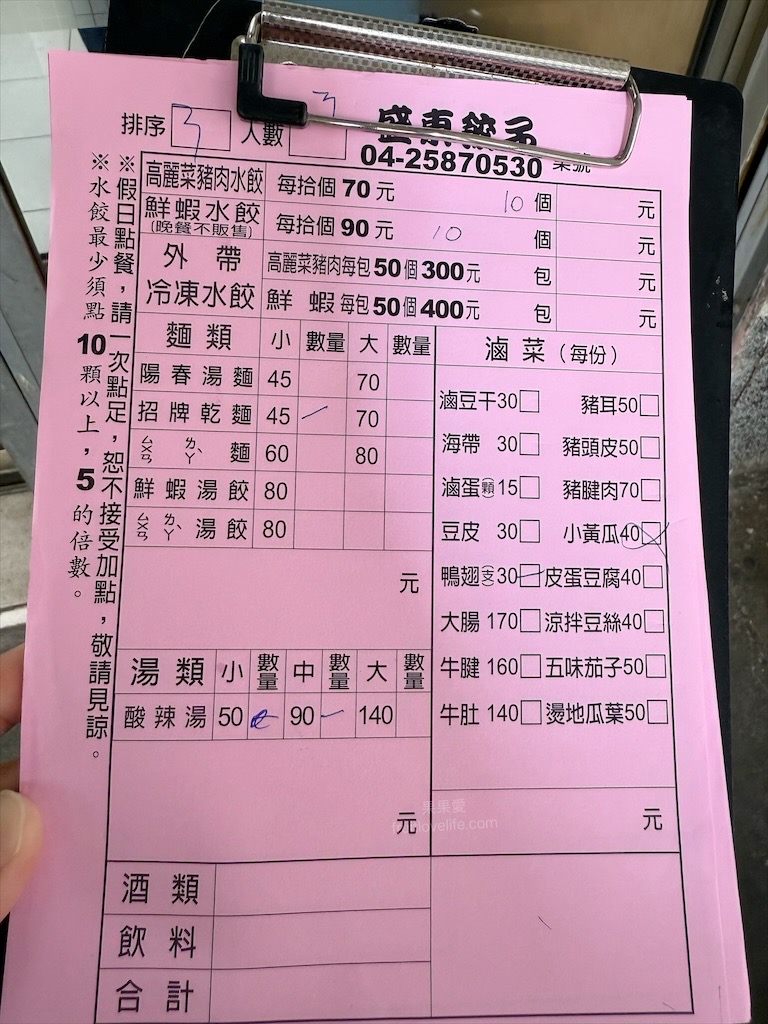 排序 3 人數 3 盛東餃子
04-25870530 桌號
高麗菜豬肉水餃 每拾個 70 元 10 個 元
鮮蝦水餃 (晚餐不販售) 每拾個 90 元 10 個 元
外帶 高麗菜豬肉每包50個300元 包 元
冷凍水餃 鮮蝦每包50個400元 包 元
※假日點餐，請一次點足，恕不接受加點，敬請見諒。
※水餃最少須點10顆以上，5的倍數。
麵類 小 數量 大 數量
陽春湯麵 45 70
招牌乾麵 45 70
ㄙㄨㄢ ㄌㄚˋ 麵 60 80
鮮蝦湯餃 80
ㄙㄨㄢ ㄌㄚˋ 湯餃 80
元
湯類 小 數量 中 數量 大 數量
酸辣湯 50 90 140
元
滷菜（每份）
滷豆干30 豬耳50
海帶 30 豬頭皮50
滷蛋(顆)15 豬腱肉70
豆皮 30 小黃瓜40
鴨翅(支)30 皮蛋豆腐40
大腸 170 涼拌豆絲40
牛腱 160 五味茄子50
牛肚 140 燙地瓜葉50
元
果果愛
酒類
飲料
合計